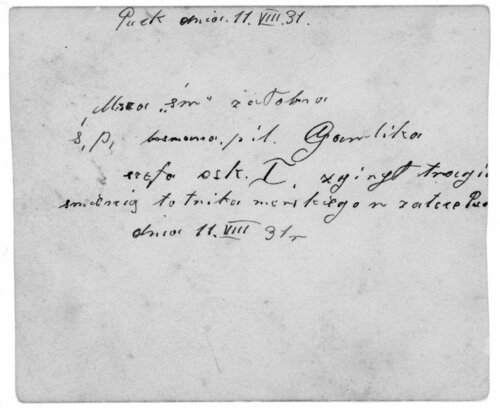 Puck dnia. 11. VIII. 31.
Msza „śm" żałobna
ś, p, bosmana, pil. Gawlika
szefa esk. I, zginął tragi
śmiercią lotnika morskiego w zatoce Puc
dnia 11. VIII 31 r